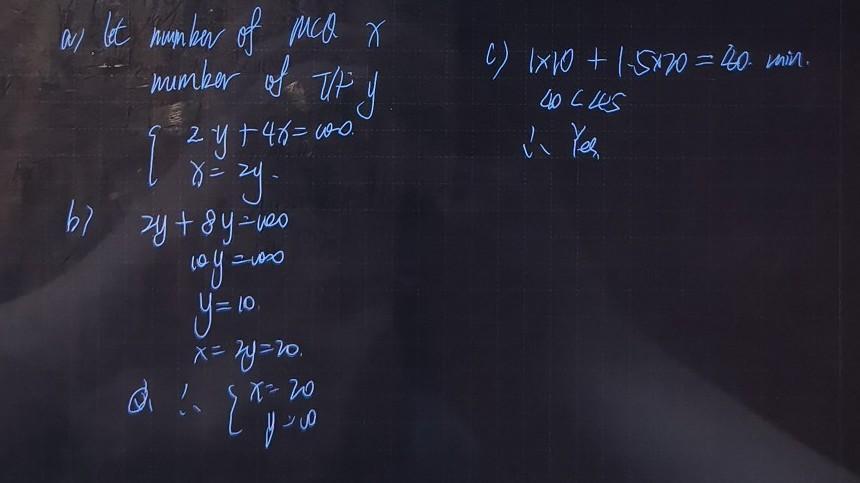 a) let number of MCQ x
number of T/F y
{ 2y + 4x = 100.
x = 2y.
b) 2y + 8y = 100
10y = 100
y = 10.
x = 2y = 20.
∴ { x = 20
y = 10
c) 1×10 + 1.5×20 = 40. min.
40 < 45
∴ Yes